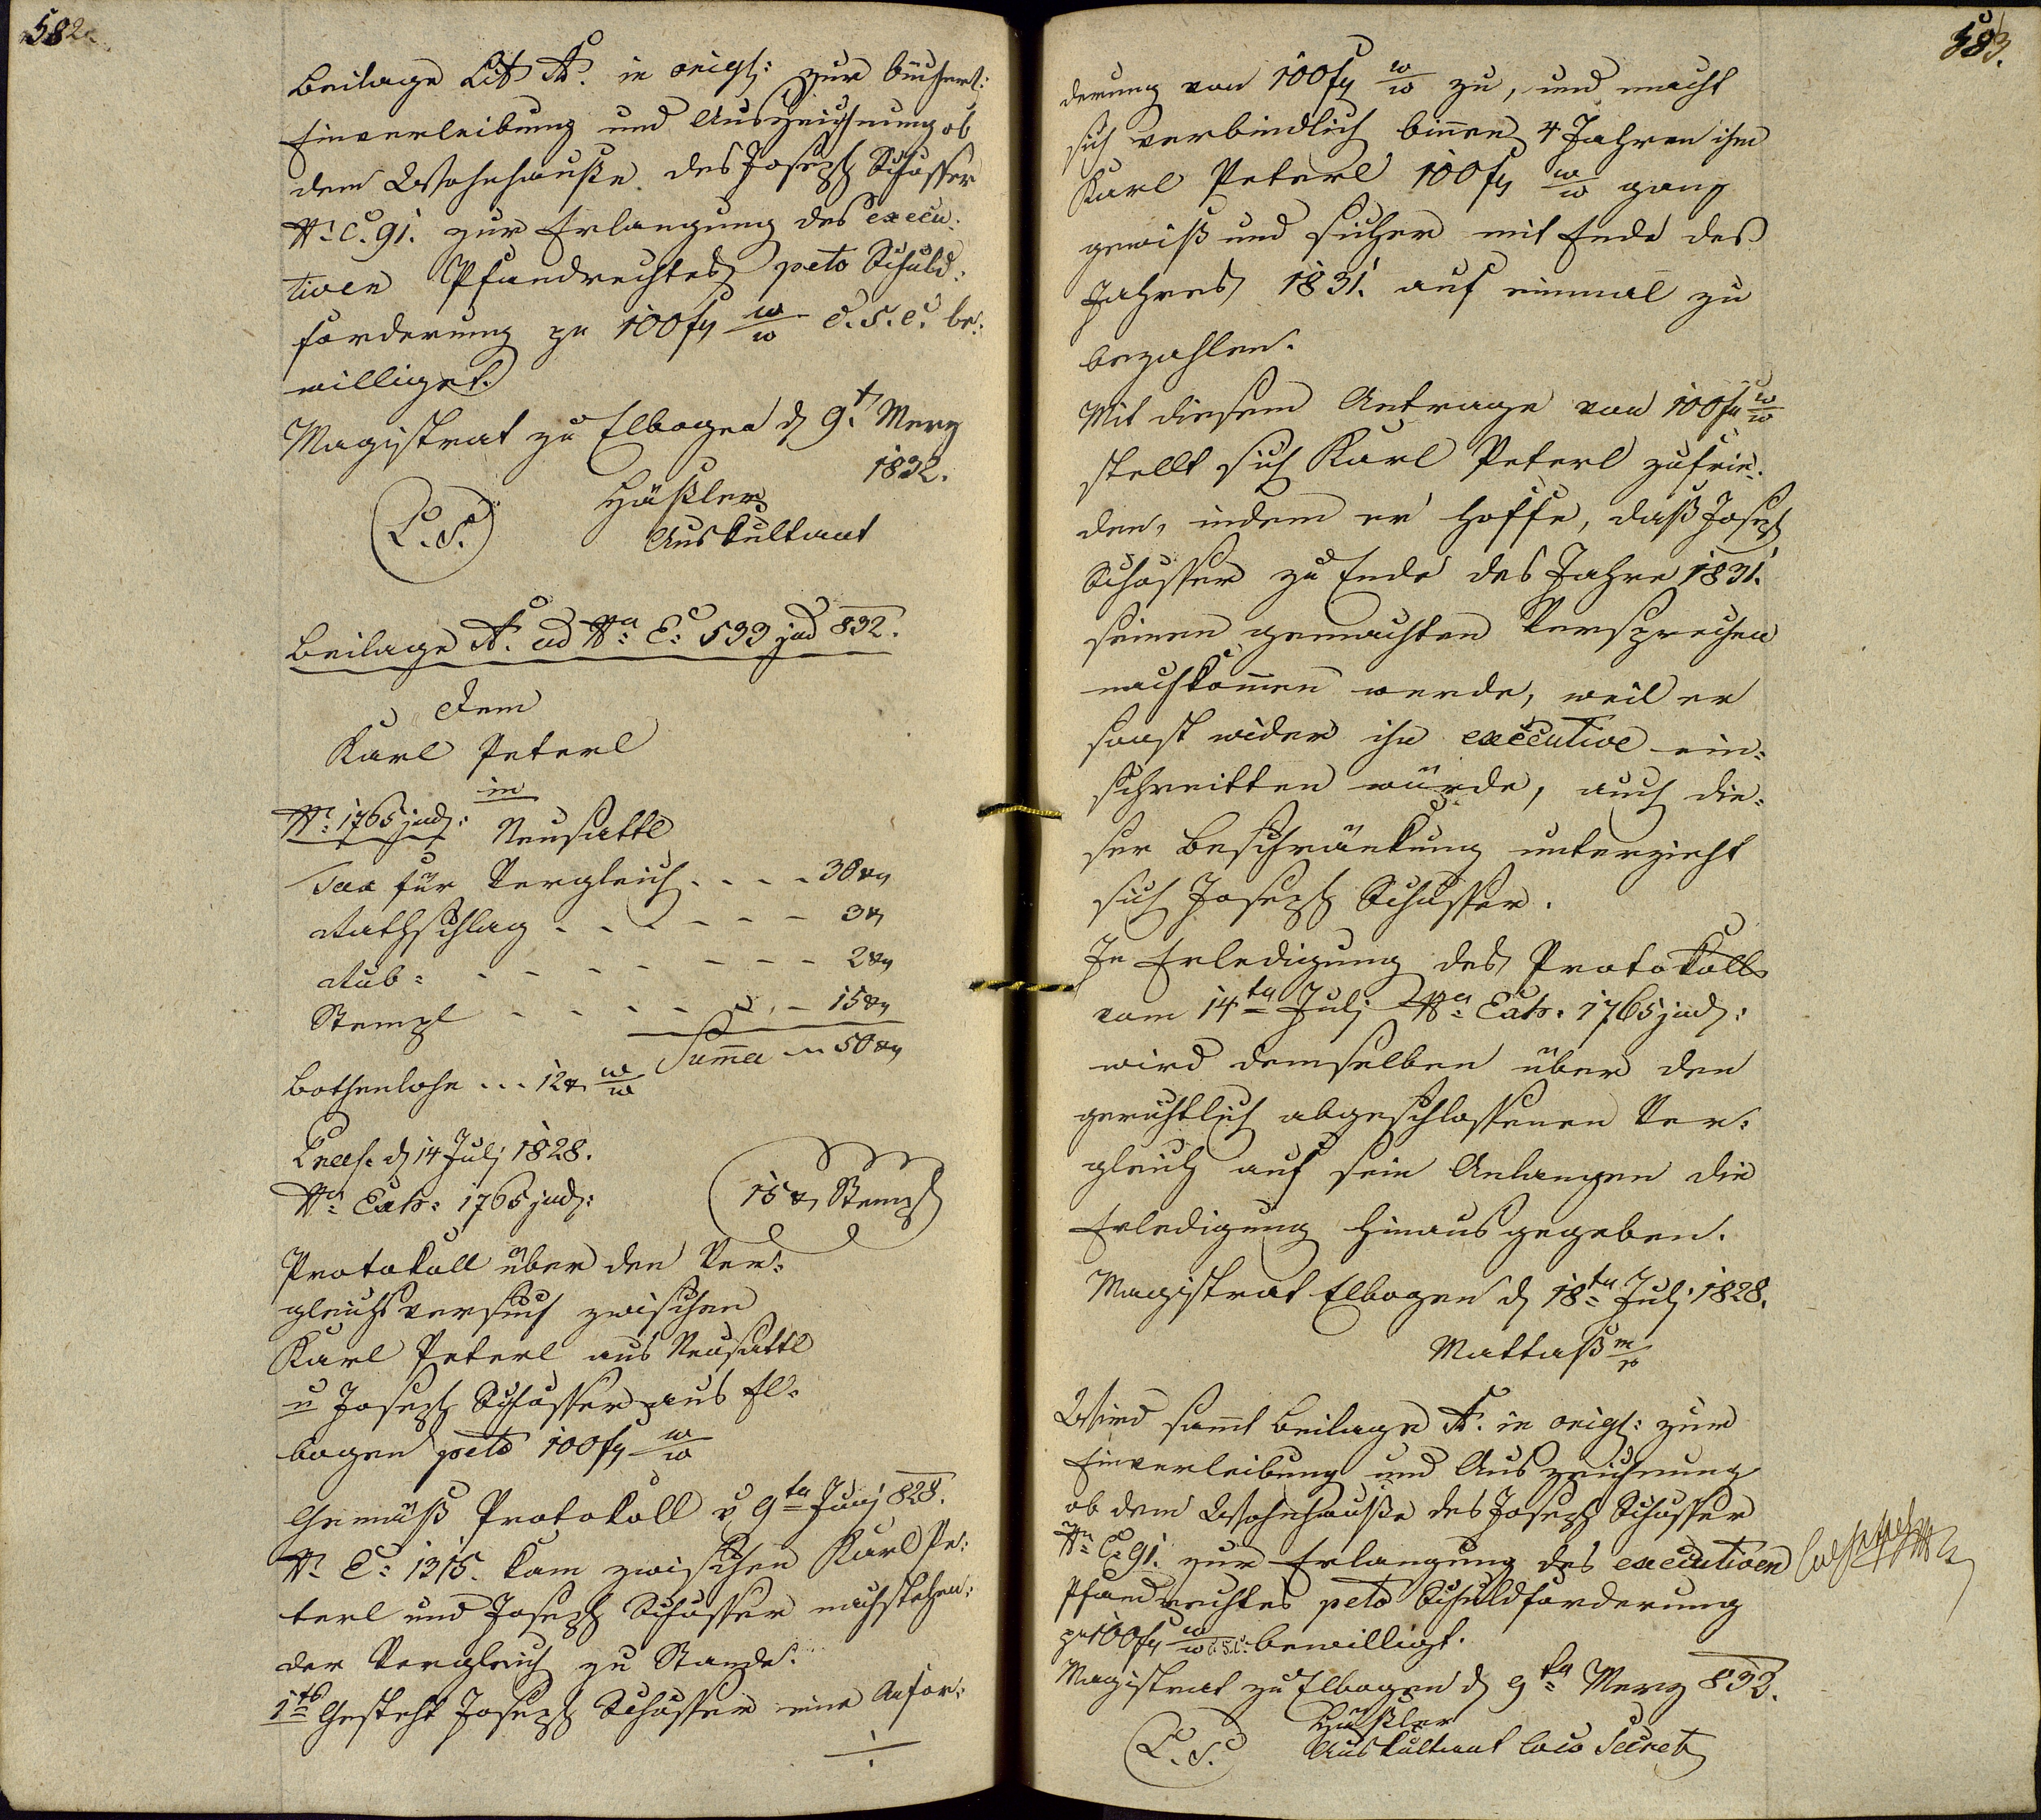 582.
Beilage Lit A. in origl: zur bücherl:
Einverleibung und Auszeichnung ob
dem Wohnhauße des Joseph Schosser
N: C. 91. zur Erlangung des execu:
tiven Pfandrechtes peto Schuld:
forderung pr 100 f w/w c.s.c. be:
williget.
Magistrat zu Elbogen d 9t Merz
1832.
(L.S.) Häßler
Auskultant
Beilage A. ad Na: E: 533 jud 832.
Dem
Karl Peterl
in
Nr: 1765 jud: Neusattl
Tax für Vergleich . . . . 30 xr
Rathschlag . . . - - - 3 x
Rub: - - - - - - - 2 xr
Stempl - - - - - - 15 xr
Summa - 50 xr
Bothenlohn . . . 12 x w/w
Praes. d 14 Juli 1828.
Na: Exh: 1765 jud: 15 x Stempl
Protokoll über den Ver:
gleichsversuch zwischen
Karl Peterl aus Neusattl
u Joseph Schosser aus El:
bogen peto 100 f w/w
Gemäß Protokoll v 9ta Juni 828.
N: E: 1315. kam zwischen Karl Pe:
terl und Joseph Schosser nachstehen:
der Vergleich zu Stande.
1tes Gesteht Joseph Schosser eine Anfor:
583.
derung von 100 f w/w zu, und macht
sich verbindlich binnen 4 Jahren ihm
Karl Peterl 100 f w/w ganz
gewiß und sicher mit Ende des
Jahres 1831. auf einmal zu
bezahlen.
Mit diesem Antrage von 100 f w/w
stellt sich Karl Peterl zufrie:
den, indem er hoffe, daß Joseph
Schosser zu Ende des Jahrs 1831.
seinen gemachten Versprechen
nachkommen werde, weil er
sonst wider ihn executive ein:
schreitten würde, auch die:
ser Beschränkung unterzieht
sich Joseph Schosser.
In Erledigung des Protokolls
vom 14ta Juli Na: Exh: 1765 jud:
wird demselben über den
gerichtlich abgeschlossenen Ver:
gleich auf sein Anlangen die
Erledigung hinausgegeben.
Magistrat Elbogen d 18ta Juli 1828.
Mattaß m/p
Wird samt Beilage A. in origl: zur
Einverleibung und Auszeichnung
ob dem Wohnhauße des Joseph Schosser
N: C: 91. zur Erlangung des executiven
Pfandrechtes peto Schuldforderung
pr 100 f w/w c.s.c. bewilligt.
Magistrat zu Elbogen d 9ta Merz 832.
Häßler
(L.S.) Auskultant loco Secret